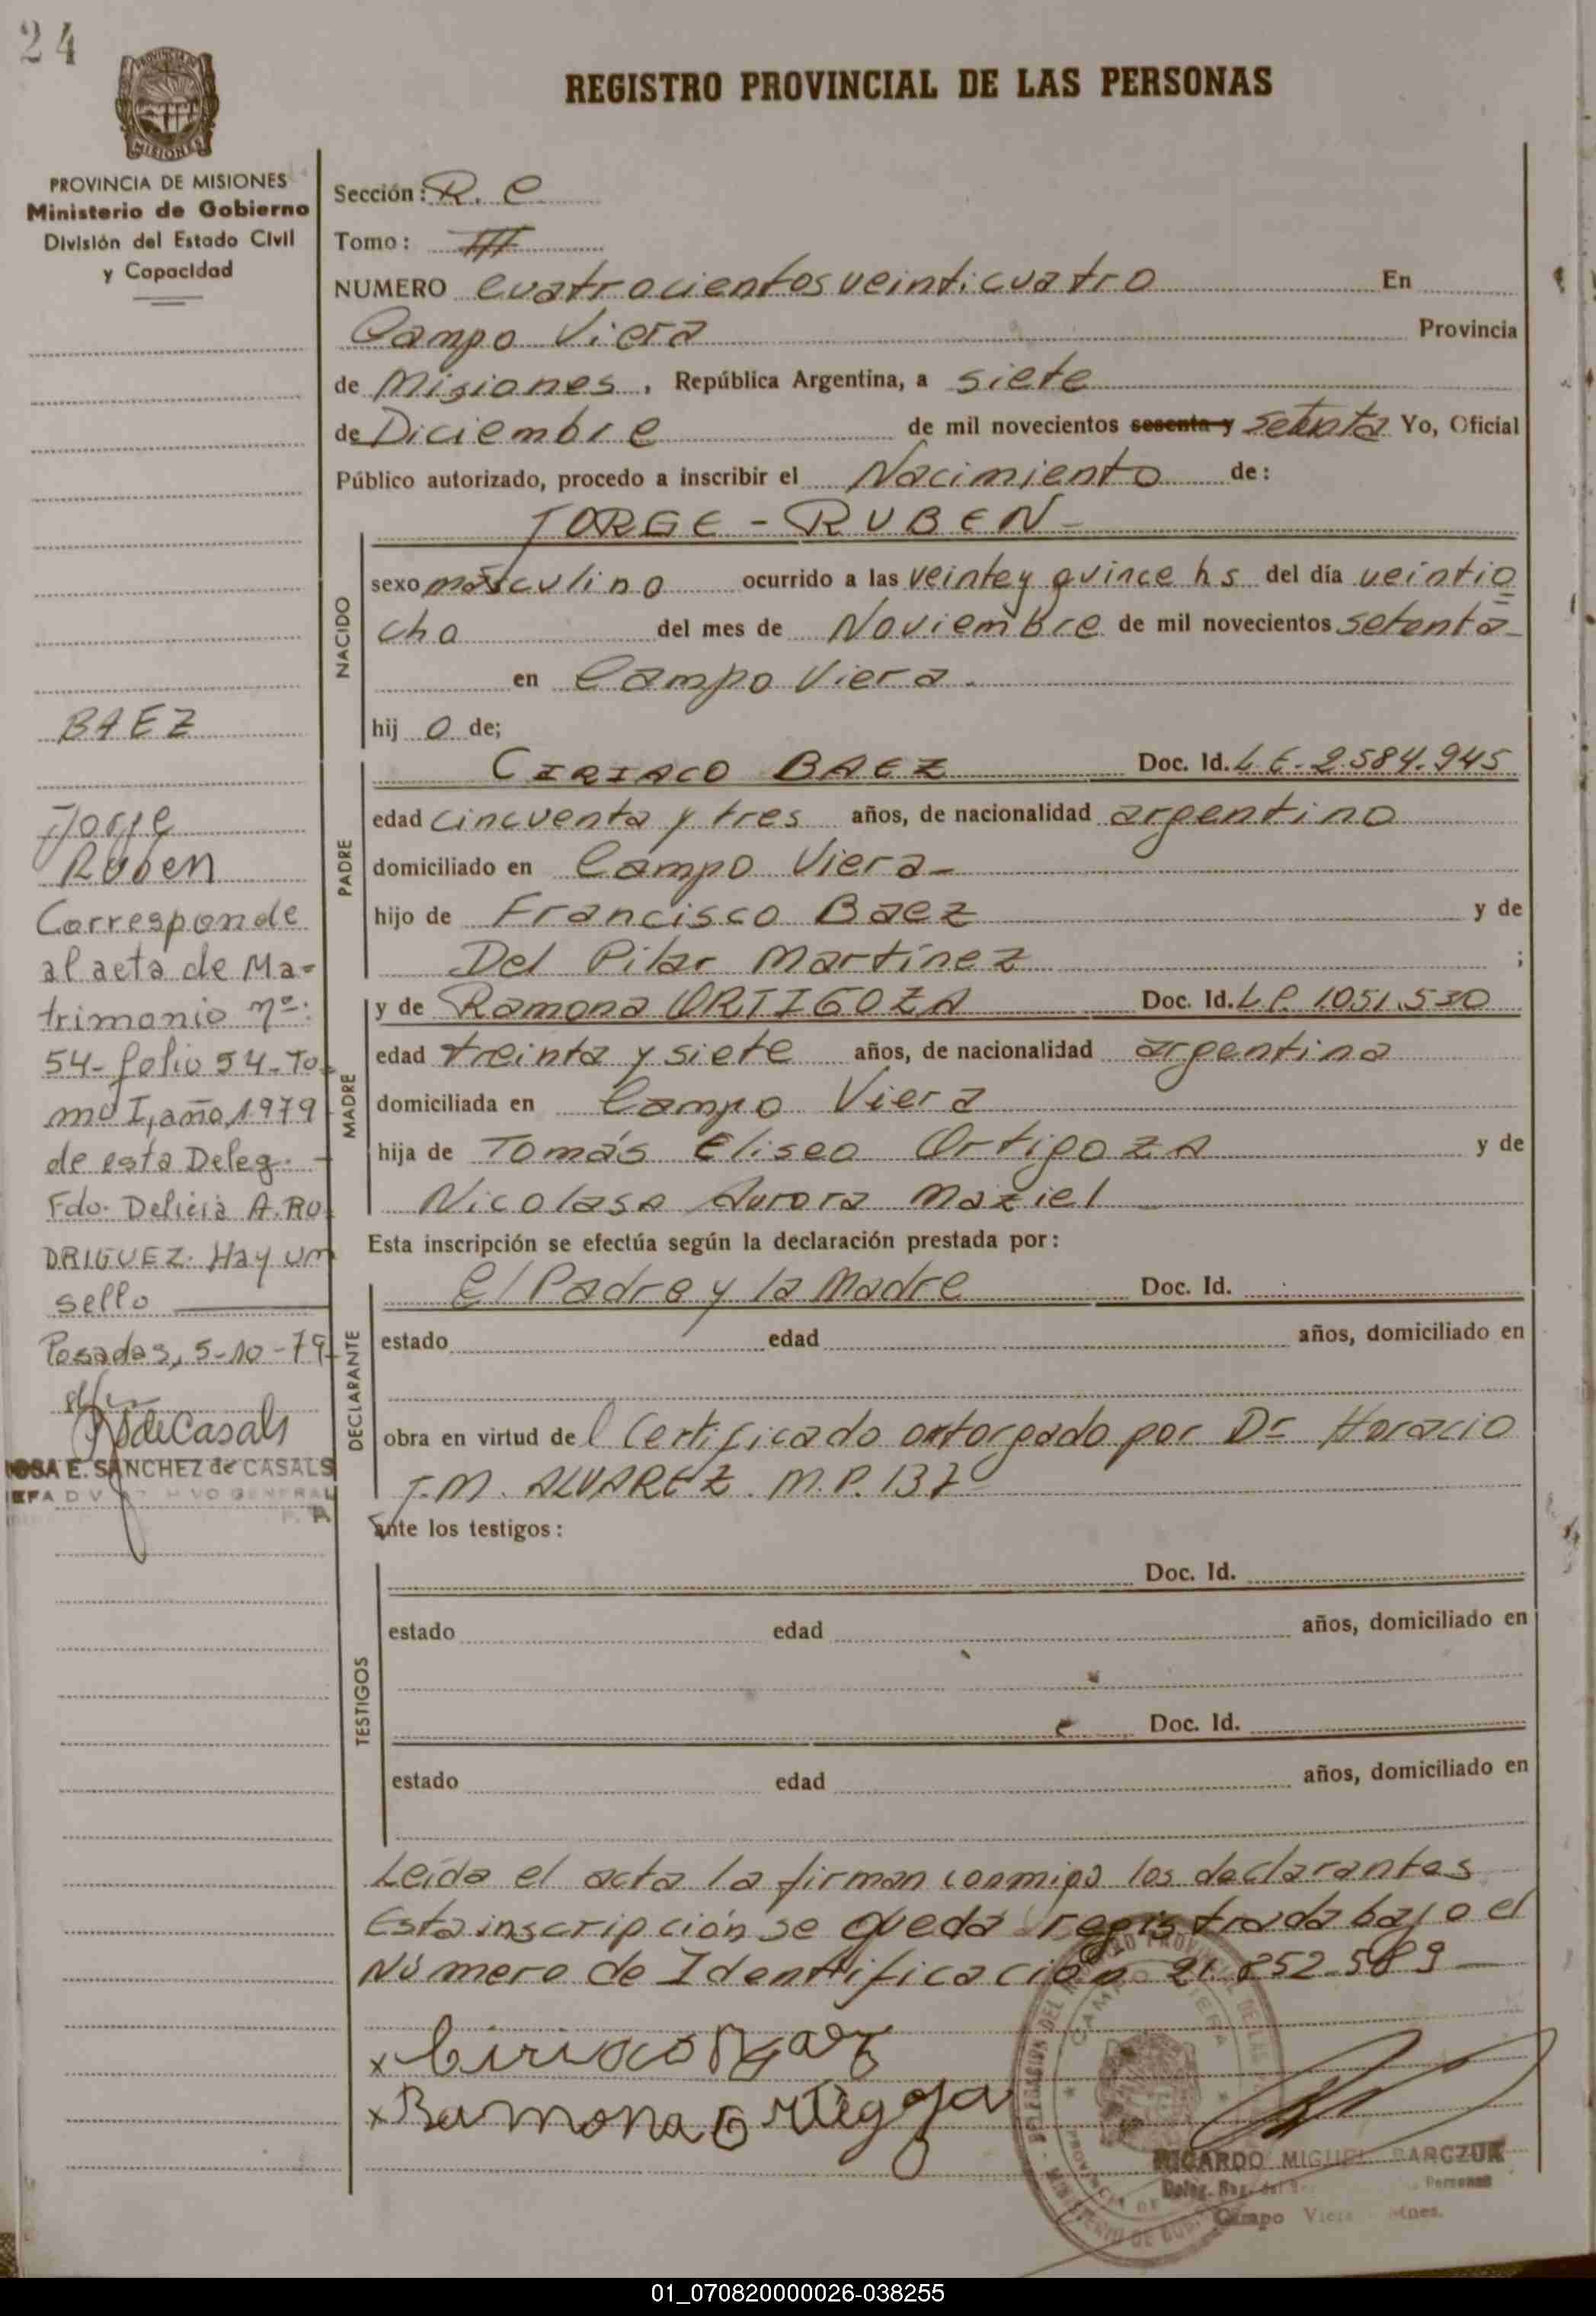 24
REGISTRO PROVINCIAL DE LAS PERSONAS
MISIONES
PROVINCIA DE MISIONES
Ministerio de Gobierno
División del Estado Civil
y Capacidad
Sección: R. C
Tomo: III
NUMERO Cuatrocientos veinticuatro En
Campo Viera Provincia
de Misiones, República Argentina, a siete
de Diciembre de mil novecientos sesenta y setenta Yo, Oficial
Público autorizado, procedo a inscribir el Nacimiento de:
JORGE - RUBEN -
NACIDO
sexo masculino ocurrido a las veinte y quince hs del día veintio
cho del mes de Noviembre de mil novecientos setenta
en Campo Viera.
hij o de;
PADRE
CIRIACO BAEZ Doc. Id. L.E. 2.584.945
edad cincuenta y tres años, de nacionalidad argentino
domiciliado en Campo Viera -
hijo de Francisco Baez y de
Del Pilar Martínez ;
MADRE
y de Ramona ORTIGOZA Doc. Id. L.C. 1.051.530
edad treinta y siete años, de nacionalidad argentina
domiciliada en Campo Viera
hija de Tomás Eliseo Ortigoza y de
Nicolasa Aurora Maziel
Esta inscripción se efectúa según la declaración prestada por:
DECLARANTE
El Padre y la Madre Doc. Id.
estado edad años, domiciliado en
obra en virtud del Certificado otorgado por Dr Horacio
J.M. ALVAREZ M.P. 137
ante los testigos:
TESTIGOS
Doc. Id.
estado edad años, domiciliado en
Doc. Id.
estado edad años, domiciliado en
Leída el acta la firman conmigo los declarantes
Esta inscripción se queda registrada bajo el
Número de Identificación 21.852.589
x Ciriaco Baez
x Ramona Ortigoza
BAEZ
Jorge
Ruben
Corresponde
al acta de Ma-
trimonio nº:
54- folio 54- To-
mo I, año, 1979
de esta Deleg. -
Fdo. Delicia A. RO
DRIGUEZ. Hay un
sello
Posadas, 5-10-79
R S de Casals
ROSA E. SANCHEZ de CASALS
CAMPO VIERA
RICARDO MIGUEL BARCZUK
Campo Viera Mnes.
01_070820000026-038255